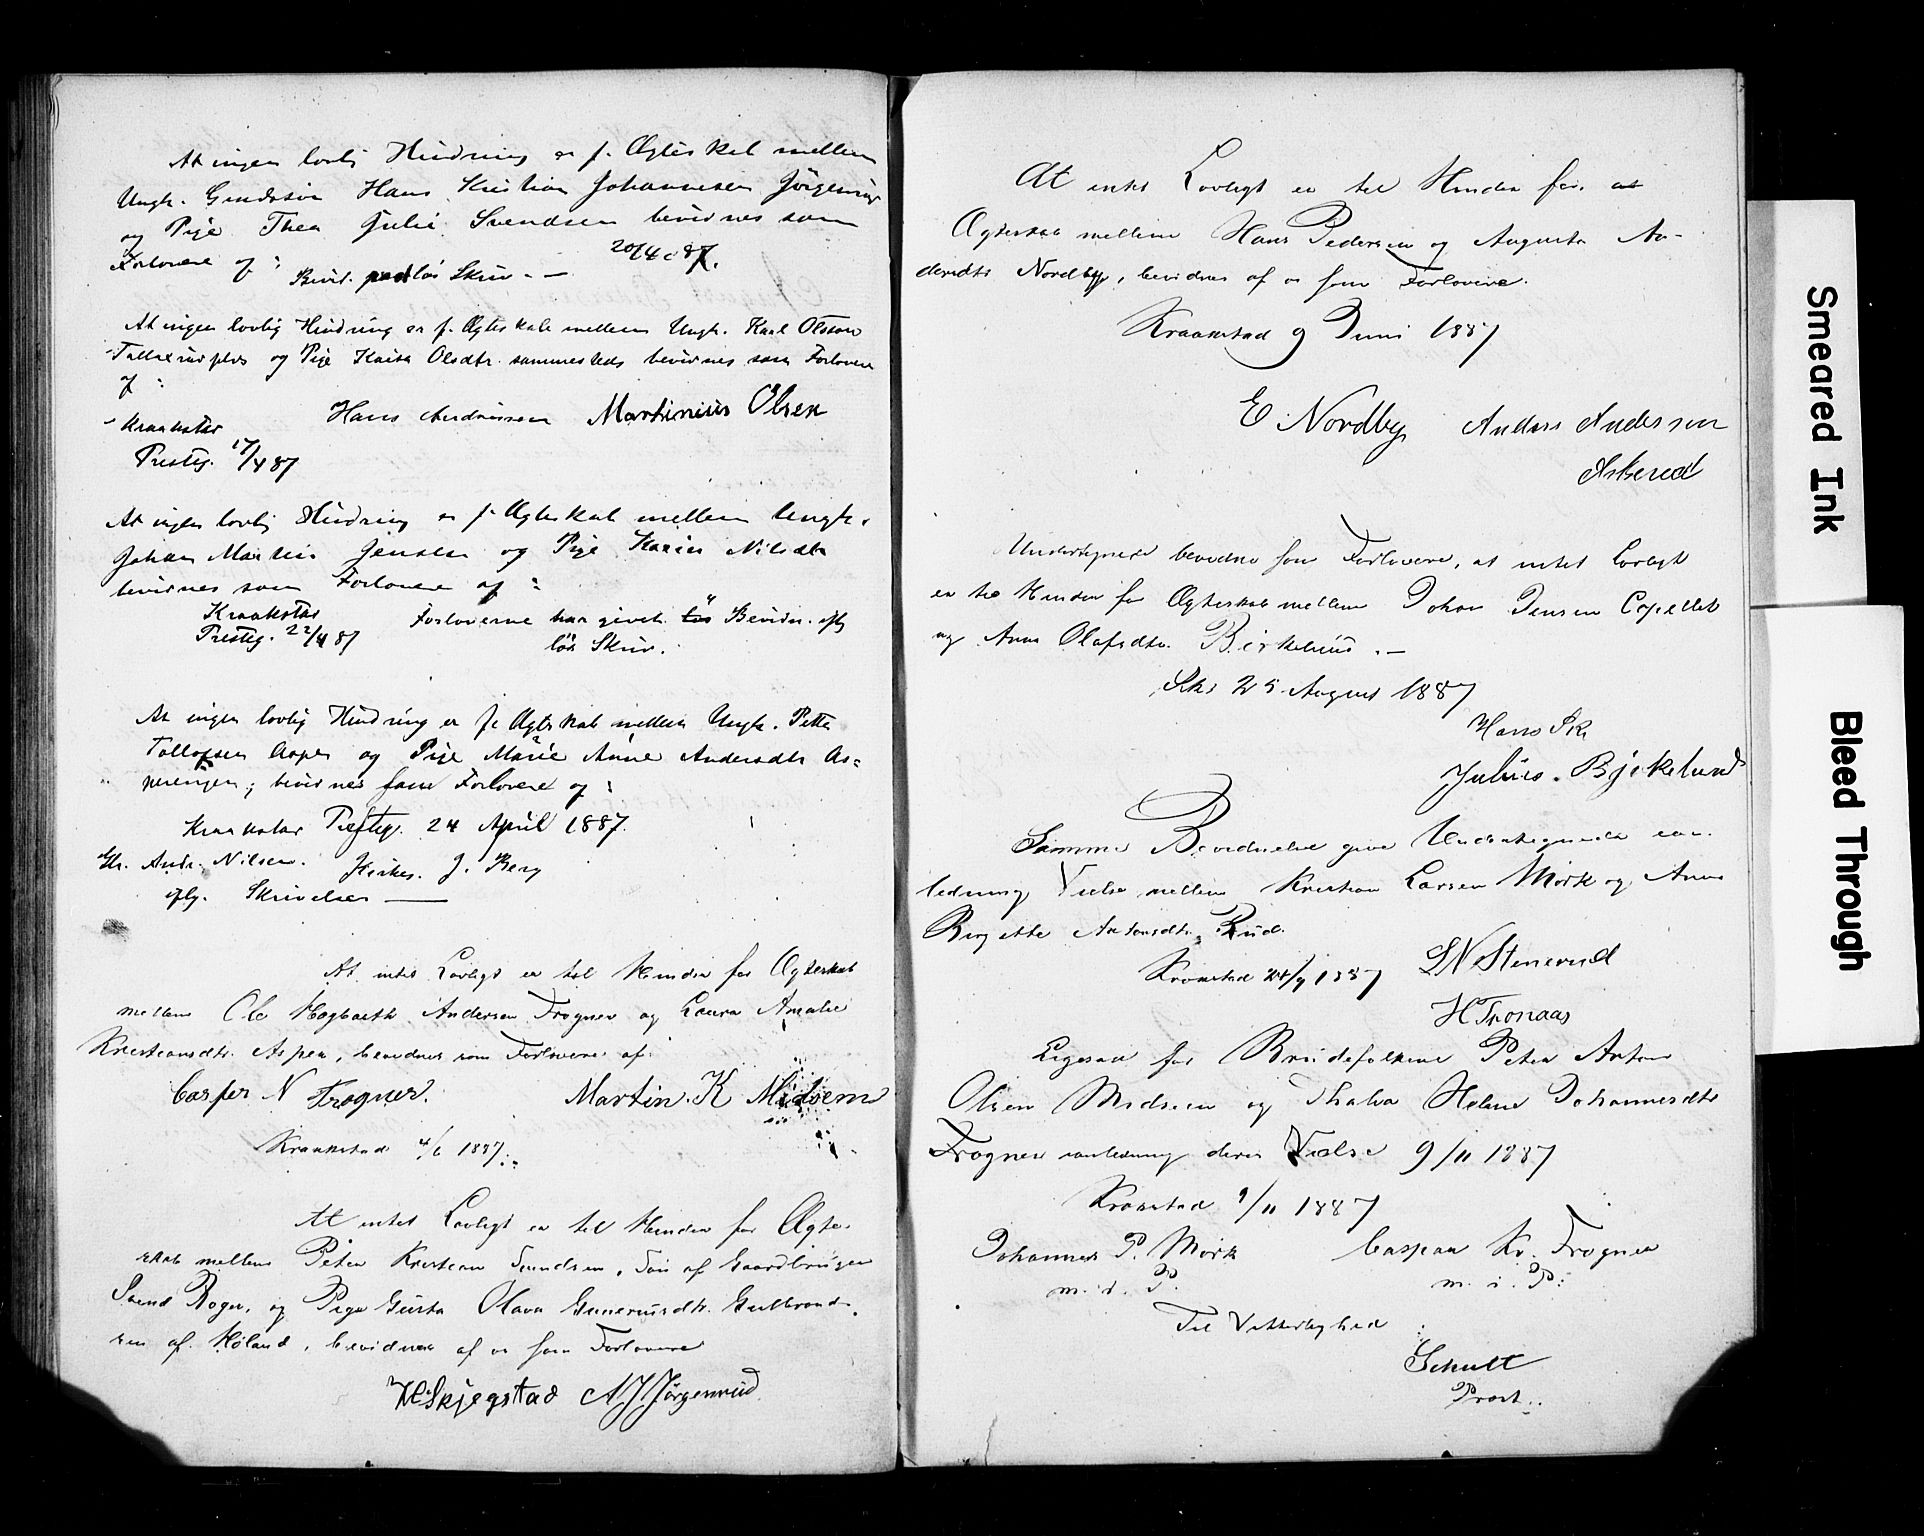 At ingen lovlig Hindring er f. Ægteskab mellem
Ungk. Hans Kristian Johannesen Jørgenrud
og Pige Thea Julie Svendsen bevidnes som
Forlovere af :
Bevidn. paa løs Skriv. — 20/4 87.
At ingen lovlig Hindring er f. Ægteskab mellem Ungk. Karl Olsson
og Pige Kaisa Olsdtr. sammesteds bevidnes som Forlovere
af :
Hans Andreassen Martinius Olsen
Kraakstad
Prestg. 17/4 87
At ingen lovlig Hindring er f. Ægteskab mellem Ungk.
Johan Martin Jensen og Pige Karin Nilsdtr
bevidnes som Forlovere af :
Kraakstad
Prestg. 22/4 87
Forloverne har givet løs Bevidn. eftr
løs Skriv.
At ingen lovlig Hindring er f. Ægteskab mellem Ungk. Petter
Tollofsen Asper og Pige Marie Anne Andersdtr As=
perengen, bevidnes som Forlovere af :
Kraakstad Prestg. 24 April 1887.
Gr. Andr. Nilsen. Kirkes. J. Berg
eftr. Skrivelser —
At intet Lovligt er til Hinder for Ægteskab
mellem Ole Hagbarth Andersen Frogner og Laura Amalie
Kristiansdtr. Aspen, bevidnes som Forlovere af
Casper N Frogner. Martin. K Midsem
Kraakstad 4/6 1887.
At intet Lovligt er til Hinder for Ægte-
skab mellem Peter Kristian Svendsen, Søn af Gaardbruger
Svend Roger, og Pige Gusta Olava Gunerusdtr. Gulbrand-
sen af Høland, bevidnes af os som Forlovere
H Skjegstad A J Jörgenrud.
At intet Lovligt er til Hinder for at
Ægteskab mellem Hans Pedersen og Augusta An-
dersdtr Nordby, bevidnes af os som Forlovere.
Kraakstad 9 Juni 1887
E Nordby Anders Andersson
Askerud
Undertegnede bevidne som Forlovere, at intet Lovligt
er til Hinder for Ægteskab mellem Johan Jensen Capellet
og Anna Olafsdtr. Birkelund. —
Ski 25 August 1887
Hans Ski
Julius. Bjrkelund
Samme Bevidnelse give Undertegnede an-
ledning Vielse mellem Kristian Larsen Mörk og Anna
Birgitte Antonsdtr. Rud.
Kraakstad 24/9 1887 L N Stenerud
H Tronaas
Ligesaa for Brudefolkene Peter Anton
Olsen Midsem og Thalia Helene Johannesdtr
Frogner anledning deres Vielse 9/11 1887
Kraakstad 9/11 1887
Johannes P. Mörk Caspar Kr. Frogner
m. i. P. m. i. P.
Til Vitterlighed
Schult
Prost.
Smeared Ink
Bleed Through